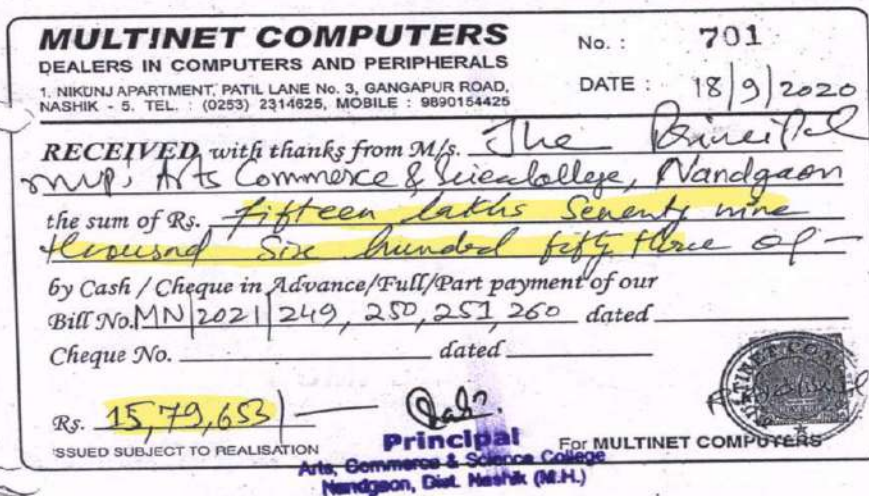 MULTINET COMPUTERS
DEALERS IN COMPUTERS AND PERIPHERALS
1. NIKUNJ APARTMENT, PATIL LANE No. 3, GANGAPUR ROAD,
NASHIK - 5. TEL. : (0253) 2314625, MOBILE : 9890154425
No. : 701
DATE : 18/9/2020
RECEIVED with thanks from M/s. The Principal
MVP, Arts Commerce & Science College, Nandgaon
the sum of Rs. fifteen lakhs Seventy nine
thousand Six hundred fifty three o/-
by Cash / Cheque in Advance/Full/Part payment of our
Bill No. MN/2021/249, 250, 251, 260 dated
Cheque No. dated
Rs. 15,79,653/-
ISSUED SUBJECT TO REALISATION
Principal
Arts, Commerce & Science College
Nandgaon, Dist. Nashik (M.H.)
For MULTINET COMPUTERS